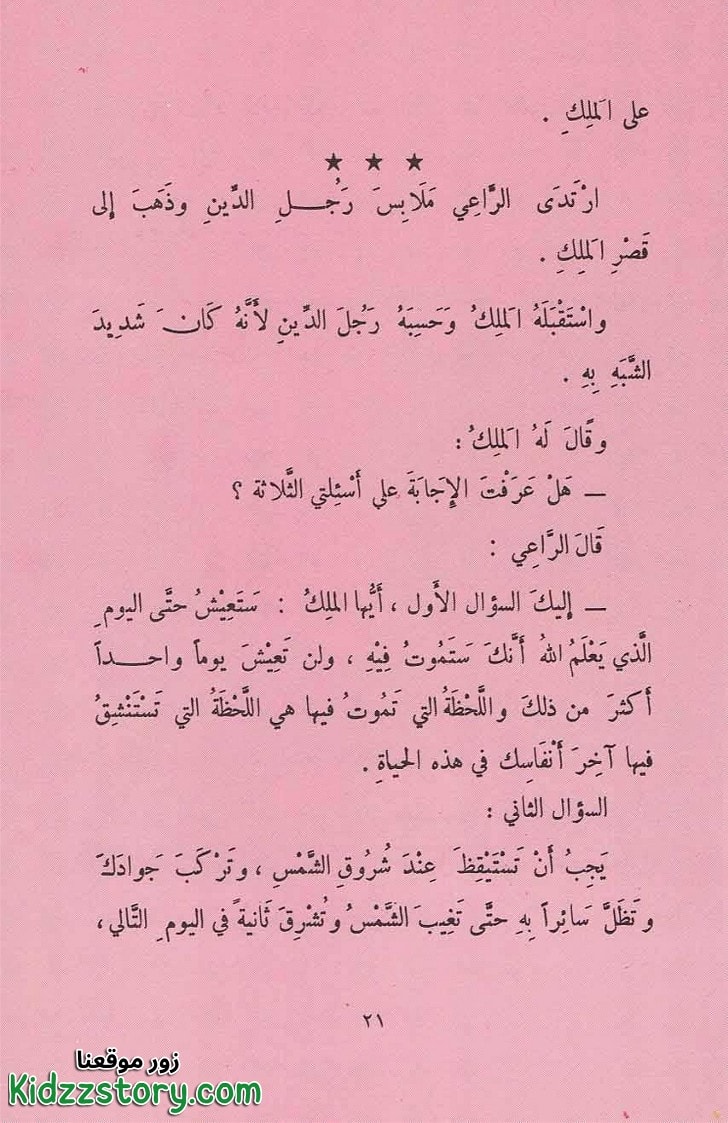 على المَلِكِ .
★ ★ ★
ارْتَدَى الرَّاعِي مَلَابِسَ رَجُلِ الدِّينِ وذَهَبَ إلى
قَصْرِ المَلِكِ .
واسْتَقْبَلَهُ المَلِكُ وَحَسِبَهُ رَجُلَ الدِّينِ لأَنَّهُ كَانَ شَدِيدَ
الشَّبَهِ بِهِ .
وقَالَ لَهُ المَلِكُ :
ــ هَلْ عَرَفْتَ الإجَابَةَ علي أَسْئِلتي الثَّلاثة ؟
قَالَ الرَّاعِي :
ــ إليكَ السؤال الأَول ، أَيُّها المَلِكُ : سَتَعِيْشُ حتَّى اليومِ
الَّذي يَعْلَمُ اللهُ أَنَّكَ سَتَمُوتُ فِيْهِ ، ولن تَعِيْشَ يوماً واحداً
أكثرَ من ذلكَ واللَّحْظَةُ التي تَموتُ فيها هي اللَّحْظَةُ التي تَسْتَنْشِقُ
فيها آخِرَ أَنْفَاسِك في هذه الحياةِ .
السؤال الثاني :
يَجِبُ أَنْ تَسْتَيْقِظَ عِنْدَ شُرُوقِ الشَّمْسِ ، وتَرْكَبَ جوادَكَ
وتَظَلَّ سَائِراً بِهِ حتَّى تَغِيبَ الشَّمْسُ وتُشْرِقَ ثَانيةً في اليومِ التَّالي ،
٢١
زور موقعنا
Kidzzstory.com